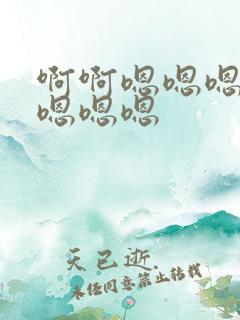 啊啊嗯嗯嗯
嗯嗯嗯
天已逝.
未经同意禁止转载